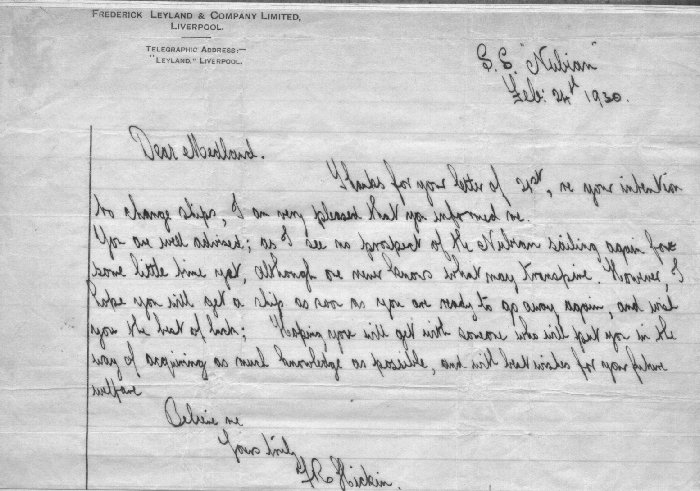 FREDERICK LEYLAND & COMPANY LIMITED,
LIVERPOOL.
TELEGRAPHIC ADDRESS:—
"LEYLAND," LIVERPOOL.
S.S. "Nubian"
Feb: 24th 1930.
Dear Medland.
Thanks for your letter of re your intention
to change ships, I am very pleased that you informed me.
You are well advised; as I see no prospect of the Nubian sailing again for
some little time yet, although one never knows what may transpire. However, I
hope you will get a ship as soon as you are ready to go away again, and wish
you the best of luck; Hoping you will get with someone who will put you in the
way of acquiring as much knowledge as possible, and with best wishes for your future
welfare
Believe me
Yours truly
Hickin.